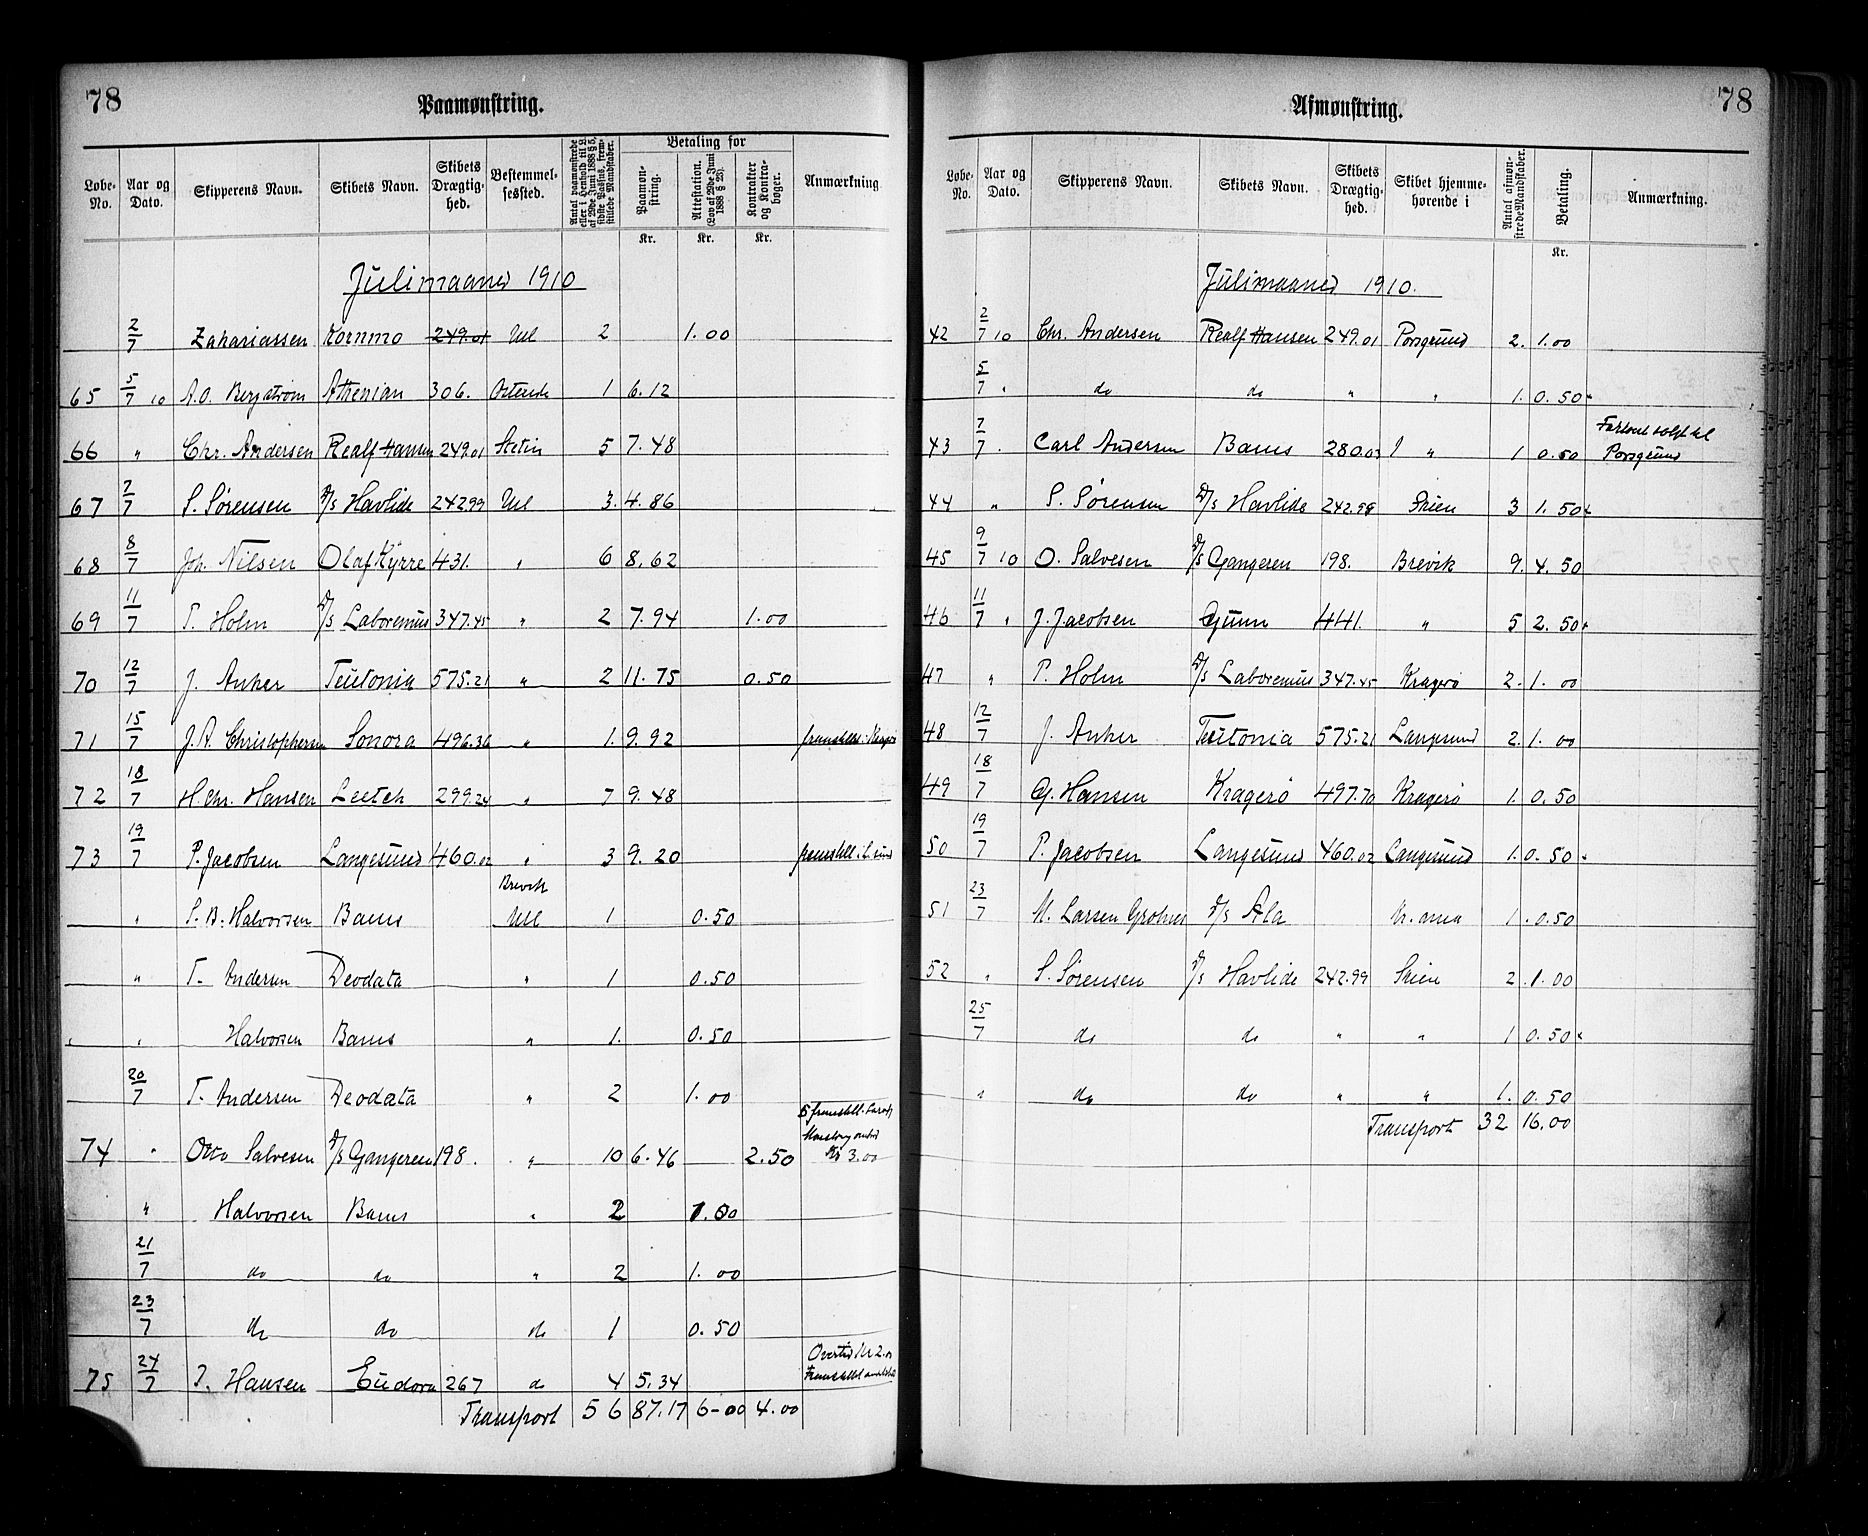 78 Paamønstring.
Løbe-No. Aar og Dato. Skipperens Navn. Skibets Navn. Skibets Drægtighed. Bestemmelsessted. Antal paamønstrede eller i Henhold til L. af 29de Juni 1888 § 5, sidste Passus, fremstillede Mandskaber. Betaling for Paamønstring. Attestation. (Lov af 29de Juni 1888 § 23). Kontrakter og Kontrabøger. Anmærkning
Kr. Kr. Kr.
Julimaaned 1910
2/7 Zahariassen Kornmo 249.01 Uul 2 1.00
65 5/7 10 A.O. Bergstrøm Athenian 306. Ostende 1 6.12
66 " Chr. Andersen Realf Hansen 249.01 Stetin 5 7.48
67 7/7 S. Sørensen D/s Havlide 242.99 Uul 3. 4.86
68 8/7 Joh. Nilsen Olaf Kyrre 431. " 6 8.62
69 11/7 P. Holm D/s Laboremus 347.45 " 2 7.94 1.00
70 12/7 J. Anker Teutonia 575.21 " 2 11.75 0.50
71 15/7 J.A. Christophersen Sonora 496.36 " 1. 9.92 fremstill. i Kragerø
72 18/7 H. Chr. Hansen Leetch 299.24 " 7 9.48
73 19/7 P. Jacobsen Langesund 460.02 " 3 9.20 fremstill. i L.sund
Brevik
" S. B. Halvorsen Bams Uul 1 0.50
" T. Andersen Deodata " 1 0.50
" " Halvorsen Bams " 1. 0.50
20/7 T. Andersen Deodata " 2 1.00
5 fremstill.
74 " Otto Salvesen D/s Gangeren 198. " 10 6.46 2.50 Kr 3.00
" Halvorsen Bams " 2 1.00
21/7 do do " 2 1.00
23/7 do do do 1 0.50
Overtid Kr 2.00
75 24/7 J. Hansen Eudora 267 do 4 5.34 Fremstillet
Transport 56 87.17 6-00 4.00
Afmønstring. 78
Løbe-No. Aar og Dato. Skipperens Navn. Skibets Navn. Skibets Drægtighed. Skibet hjemmehørende i Antal afmønstrede Mandskaber. Betaling. Anmærkning.
Kr.
Julimaaned 1910.
42 2/7 10 Chr. Andersen Realf Hansen 249.01 Porsgrund 2. 1.00
5/7 " do do " " 1. 0.50
43 7/7 " Carl Andersen Bams 280.03 " 1 0.50 Fartøiet solgt til Porsgrund
44 " S. Sørensen D/s Havlide 242.99 Skien 3 1.50
45 9/7 10 O. Salvesen D/s Gangeren 198. Brevik 9. 4.50
46 11/7 " J. Jacobsen Gunn 441. " 5 2.50
47 " P. Holm D/s Laboremus 347.45 Kragerø 2. 1.00
48 12/7 J. Anker Teutonia 575.21 Langesund 2. 1.00
49 18/7 G. Hansen Kragerø 497.70 Kragerø 1. 0.50
50 19/7 P. Jacobsen Langesund 460.02 Langesund 1. 0.50
51 23/7 M. Larsen D/s Ala 1. 0.50
52 " S. Sørensen D/s Havlide 242.99 Skien 2. 1.00
25/7 do do " " 1 0.50
" do do " " 1. 0.50
Transport 32 16.00